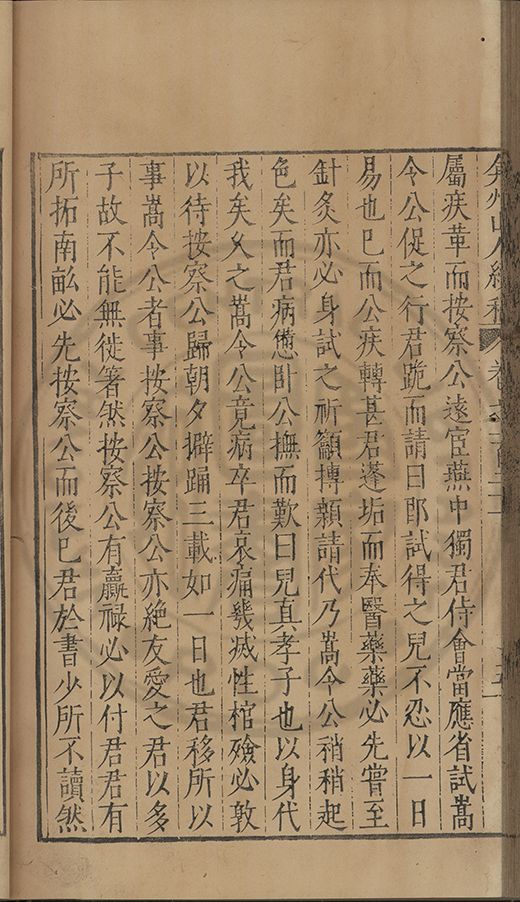 弇州山人續稿 卷之一百二十 五
屬疾革而按察公遠宦燕中獨君侍會當應省試嵩
令公促之行君跪而請曰郎試得之兒不忍以一日
易也巳而公疾轉甚君蓬垢而奉醫藥藥必先嘗至
針灸亦必身試之祈籲摶顙請代乃嵩令公稍稍起
色矣而君病憊卧公撫而歎曰兒真孝子也以身代
我矣乆之嵩令公竟病卒君哀痛幾滅性棺殮必敦
以待按察公歸朝夕擗踊三載如一日也君移所以
事嵩令公者事按察公按察公亦絶友愛之君以多
子故不能無徙箸然按察公有贏禄必以付君君有
所拓南畝必先按察公而後巳君於書少所不讀然